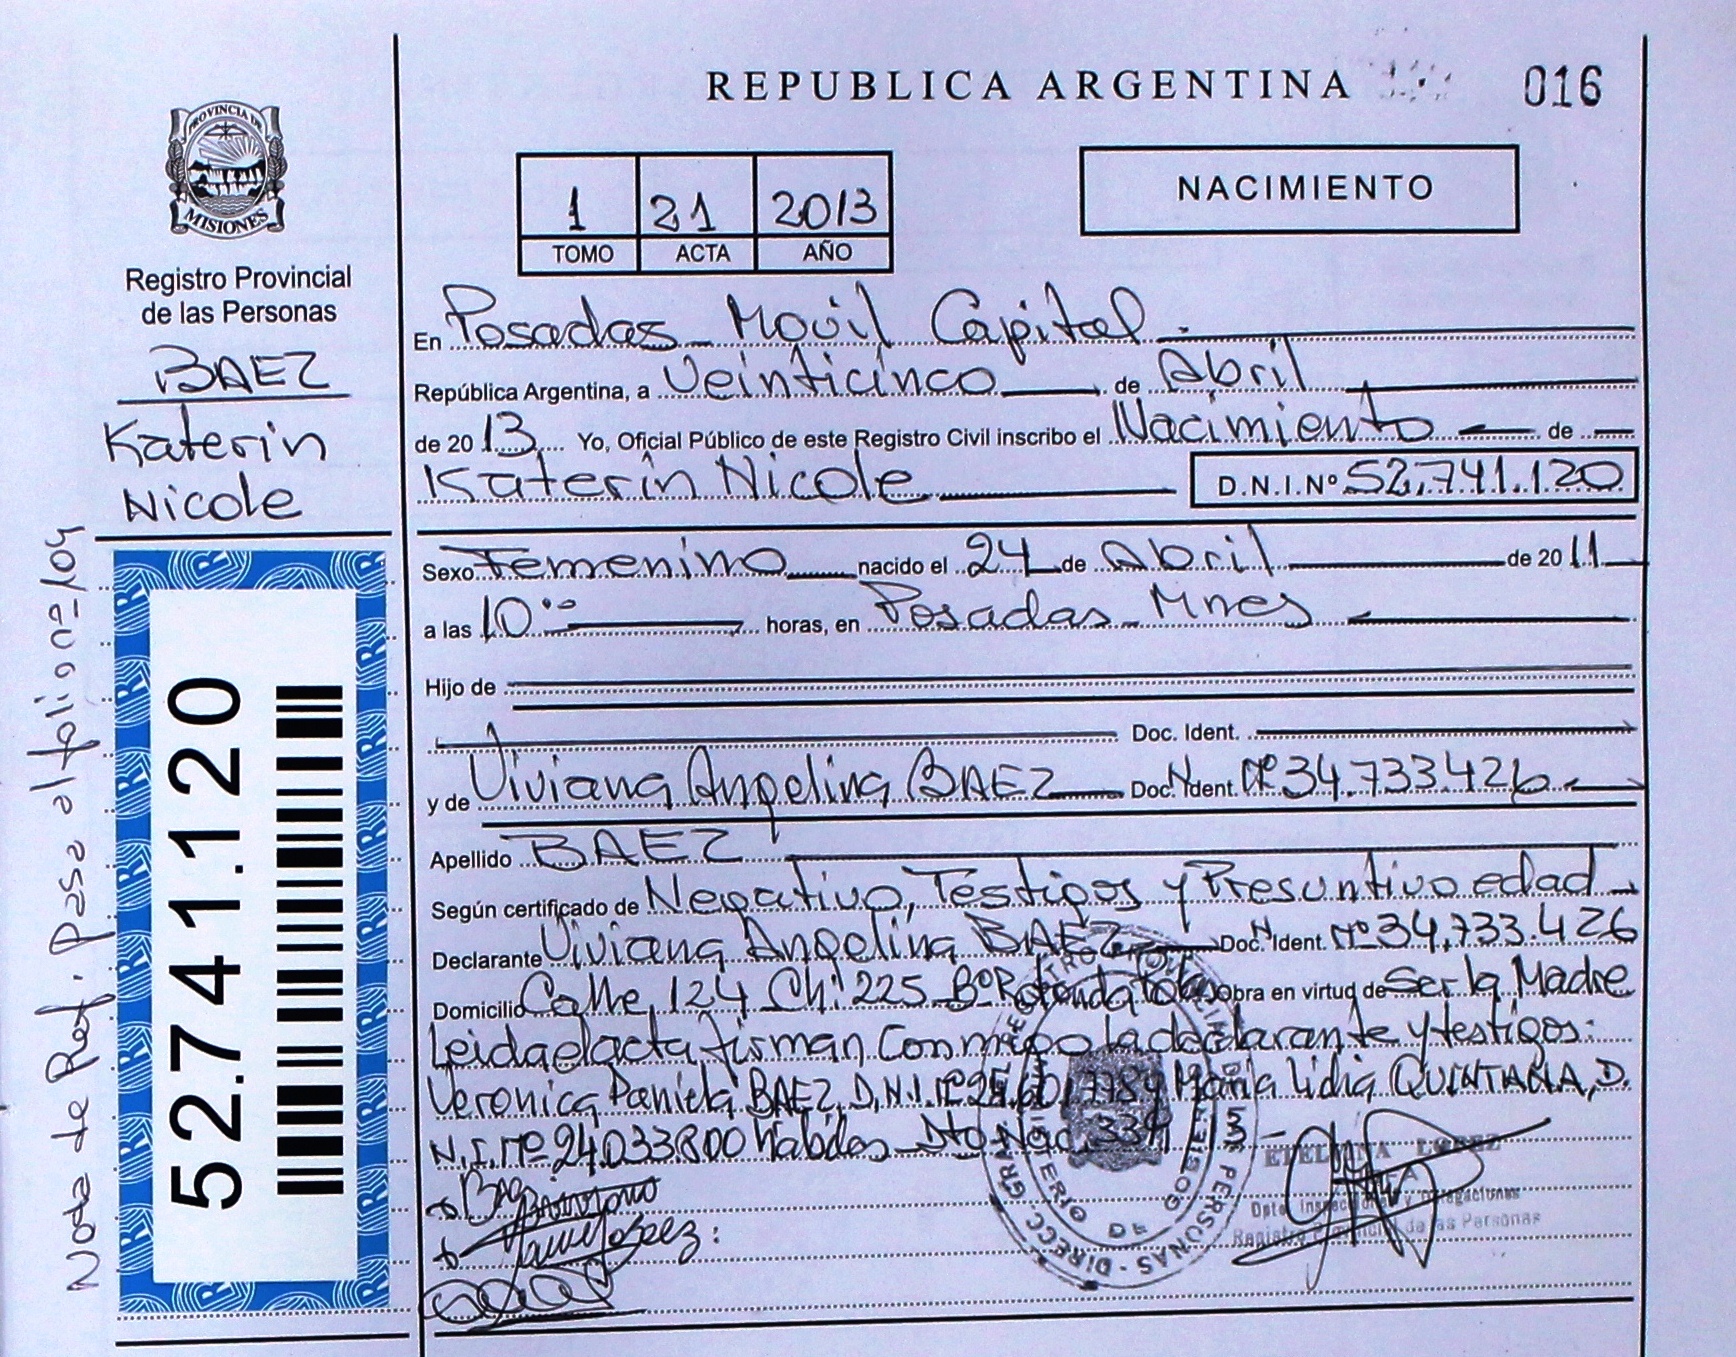 REPUBLICA ARGENTINA
016
PROVINCIA DE
MISIONES
Registro Provincial
de las Personas
BAEZ
Katerin
Nicole
Nota de Ref. Pasa al folio nº 104
52.741.120
1 21 2013
TOMO ACTA AÑO
NACIMIENTO
En Posadas Movil Capital
República Argentina, a Veinticinco de Abril
de 2013 Yo, Oficial Público de este Registro Civil inscribo el Nacimiento de
Katerin Nicole D.N.I.Nº 52.741.120
Sexo Femenino nacido el 24 de Abril de 2011
a las 10⁰⁰ horas, en Posadas Mnes
Hijo de
Doc. Ident.
y de Viviana Angelina BAEZ Doc. N. Ident. Nº 34.733.426
Apellido BAEZ
Según certificado de Negativo, Testigos y Presuntivo edad
Declarante Viviana Angelina BAEZ Doc. N. Ident. Nº 34.733.426
Domicilio Calle 124 Ch: 225 Bº Rotonda Obra en virtud de Ser la Madre
Leida el acta firman Conmigo la declarante y testigos:
Veronica Daniela BAEZ, D.N.I. Nº y Maria Lidia QUINTANA, D.
N.I. Nº 24.033.800 habides Dto Nac 339 13
ETELVINA LOPEZ
JEFA
Dpto. Inspecciones y Delegaciones
Registro Provincial de las Personas